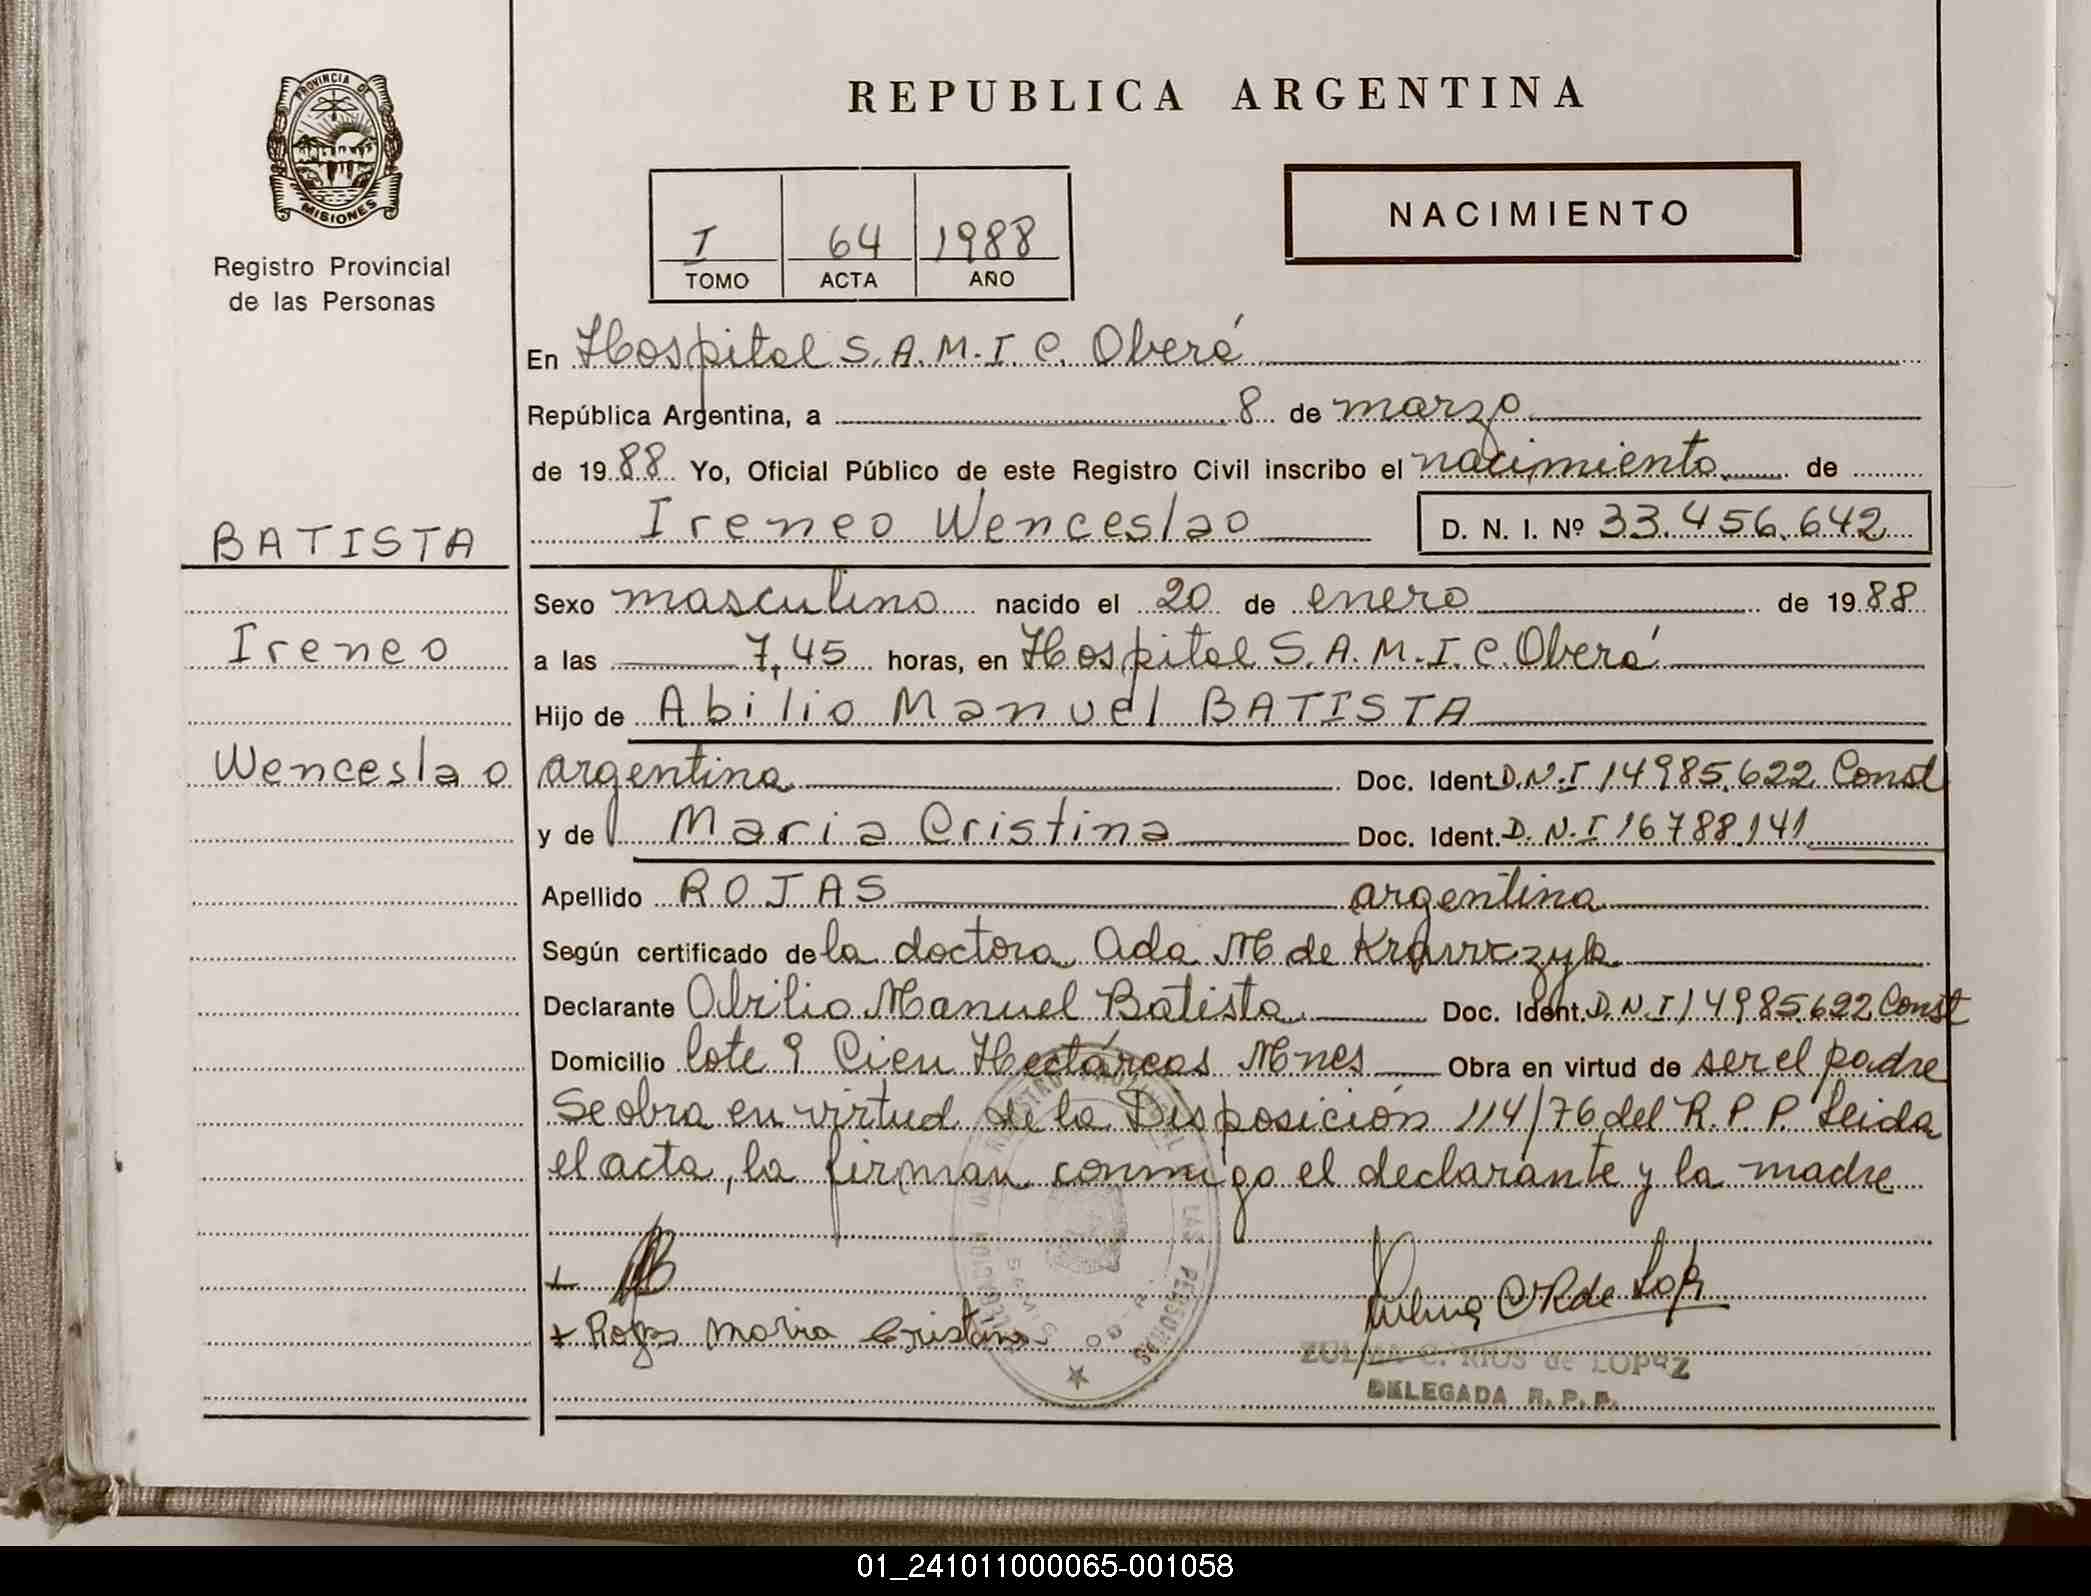 PROVINCIA DE
MISIONES
Registro Provincial
de las Personas
REPUBLICA ARGENTINA
NACIMIENTO
I 64 1988
TOMO ACTA AÑO
En Hospital S.A.M.I.C. Oberá
República Argentina, a 8 de marzo
de 1988 Yo, Oficial Público de este Registro Civil inscribo el nacimiento de
Ireneo Wenceslao D. N. I. Nº 33.456.642
BATISTA
Ireneo
Wenceslao
Sexo masculino nacido el 20 de enero de 1988
a las 7,45 horas, en Hospital S.A.M.I.C. Oberá
Hijo de Abilio Manuel BATISTA
argentina Doc. Ident. D.N.I 14985.622 Const
y de Maria Cristina Doc. Ident. D.N.I 16788.141
Apellido ROJAS argentina
Según certificado de la doctora Ada M de Krawczyk
Declarante Abilio Manuel Batista Doc. Ident. D.N.I 14985.622 Const
Domicilio lote 9 Cien Hectáreas Mnes Obra en virtud de ser el padre
Se obra en virtud de la Disposición 114/76 del R.P.P. Leida
el acta, la firman conmigo el declarante y la madre
Rojas Maria Cristina
ZULMA C. RIOS de LOPEZ
DELEGADA R.P.P.
01_241011000065-001058